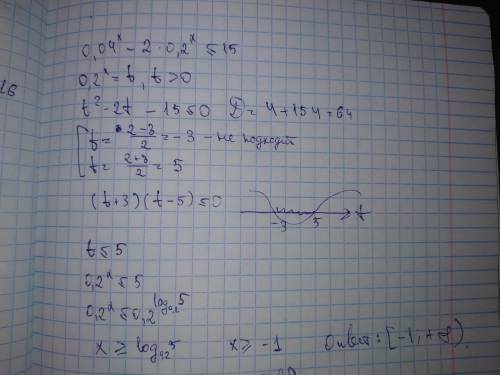 26
0,04^x - 2·0,2^x ≤ 15
0,2^x = t, t > 0
t² - 2t - 15 ≤ 0   D = 4 + 15·4 = 64
[ t = (2-8)/2 = -3 - не подходит
t = (2+8)/2 = 5
(t+3)(t-5) ≤ 0   -3   5   t
t ≤ 5
0,2^x ≤ 5
0,2^x ≤ 0,2^(log_0,2 5)
x ≥ log_0,2 5   x ≥ -1   Ответ: [-1; +∞)